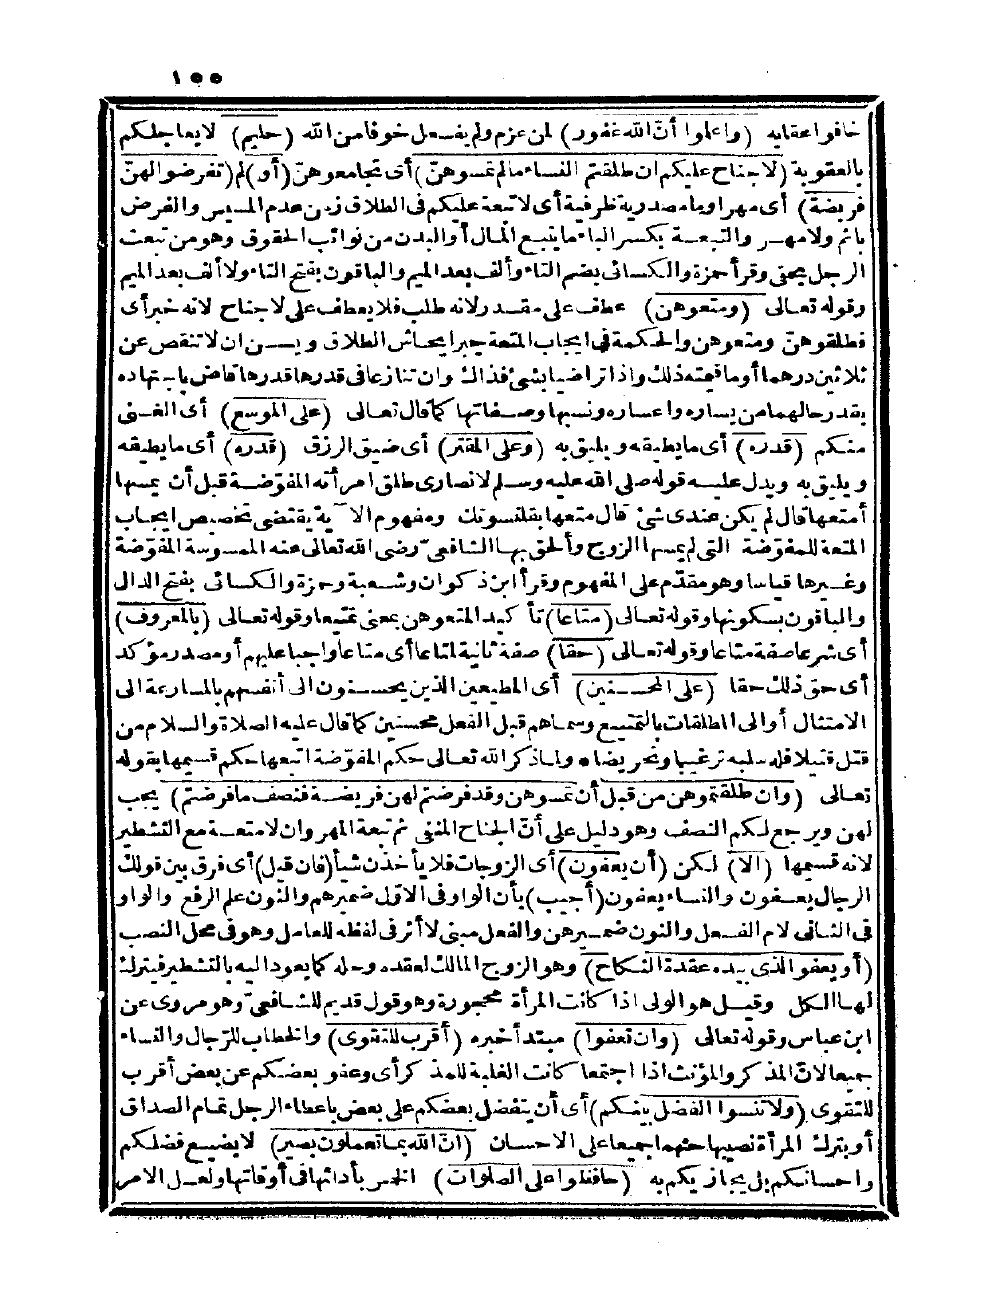 ١٥٥
خافوا عقابه (واعلموا أنّ الله غفور) لمن عزم ولم يفعل خوفا من الله (حليم) لا يعاجلكم
بالعقوبة (لا جناح عليكم ان طلقتم النساء مالم تمسوهنّ) أى تجامعوهنّ (أو) لم (تفرضوا لهنّ
فريضة) أى مهرا وما مصدرية ظرفية أى لا تبعة عليكم فى الطلاق زمن عدم المسيس والفرض
باثم ولا مهر والتبعة بكسر الباء ما يتبع المال أو البدن من نوائب الحقوق وهو من تبعت
الرجل بحقى وقرأ حمزة والكسائى بضم التاء وألف بعد الميم والباقون بفتح التاء ولا ألف بعد الميم
وقوله تعالى (ومتعوهن) عطف على مقدر لانه طلب فلا يعطف على لا جناح لانه خبر أى
فطلقوهنّ ومتعوهن والحكمة فى ايجاب المتعة جبر ايحاش الطلاق ويسن ان لا تنقص عن
ثلاثين درهما أو ما قيمته ذلك واذا تراضيا بشئ فذاك وان تنازعا فى قدرها قدرها قاض باجتهاده
بقدر حالهما من يساره واعساره ونسبها وصفاتها كما قال تعالى (على الموسع) أى الغنى
منكم (قدره) أى ما يطيقه ويليق به (وعلى المقتر) أى ضيق الرزق (قدره) أى ما يطيقه
ويليق به ويدل عليه قوله صلى الله عليه وسلم لانصارى طلق امرأته المفوّضة قبل أن يمسها
أمتعها قال لم يكن عندى شئ قال متعها بقلنسوتك ومفهوم الآية يقتضى تخصيص ايجاب
المتعة للمفوّضة التى لم يمسها الزوج وألحق بها الشافعىّ رضى الله تعالى عنه الممسوسة المفوّضة
وغيرها قياسا وهو مقدّم على المفهوم وقرأ ابن ذكوان وشعبة وحمزة والكسائى بفتح الدال
والباقون بسكونها وقوله تعالى (متاعا) تأكيد لمتعوهن بمعنى تمتيعا وقوله تعالى (بالمعروف)
أى شرعا صفة متاعا وقوله تعالى (حقا) صفة ثانية لمتاعا أى متاعا واجبا عليهم أو مصدر مؤكد
أى حق ذلك حقا (على المحسنين) أى المطيعين الذين يحسنون الى أنفسهم بالمسارعة الى
الامتثال أو الى المطلقات بالتمتيع وسماهم قبل الفعل محسنين كما قال عليه الصلاة والسلام من
قتل قتيلا فله سلبه ترغيبا وتحريضا * ولما ذكر الله تعالى حكم المفوّضة اتبعها حكم قسيمها بقوله
تعالى (وان طلقتموهن من قبل أن تمسوهن وقد فرضتم لهن فريضة فنصف ما فرضتم) يجب
لهن ويرجع لكم النصف وهو دليل على أنّ الجناح المنفى ثم تبعة المهر وان لا متعة مع التشطير
لانه قسيمها (الا) لكن (أن يعفون) أى الزوجات فلا يأخذن شيأ (فان قيل) أى فرق بين قولك
الرجال يعفون والنساء يعفون (أجيب) بأن الواو فى الاوّل ضميرهم والنون علم الرفع والواو
فى الثانى لام الفعل والنون ضميرهن والفعل مبنى لا أثر فى لفظه للعامل وهو فى محل النصب
(أو يعفو الذى بيده عقدة النكاح) وهو الزوج المالك لعقده وحله كما يعود اليه بالتشطير فيترك
لها الكل وقيل هو الولى اذا كانت المرأة محجورة وهو قول قديم للشافعىّ وهو مروى عن
ابن عباس وقوله تعالى (وان تعفوا) مبتدأ خبره (أقرب للتقوى) والخطاب للرّجال والنساء
جميعا لانّ المذكر والمؤنث اذا اجتمعا كانت الغلبة للمذكر أى وعفو بعضكم عن بعض أقرب
للتقوى (ولا تنسوا الفضل بينكم) أى أن يتفضل بعضكم على بعض باعطاء الرجل تمام الصداق
أو بترك المرأة نصيبها حثهما جميعا على الاحسان (انّ الله بما تعملون بصير) لا يضيع فضلكم
واحسانكم بل يجازيكم به (حافظوا على الصلوات) الخمس بأدائها فى أوقاتها ولعل الامر